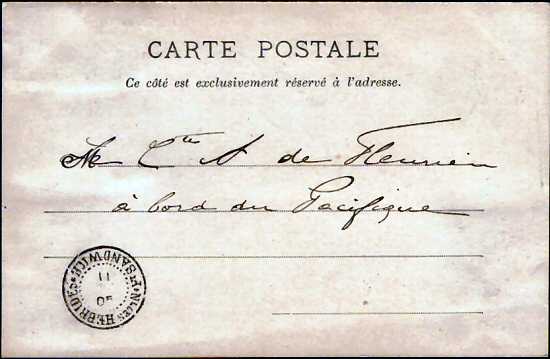 CARTE POSTALE
Ce côté est exclusivement réservé à l'adresse.
Cte A de Fleurieu
à bord du Pacifique
Pt SANDWICH
NLLES HEBRIDES
11
05